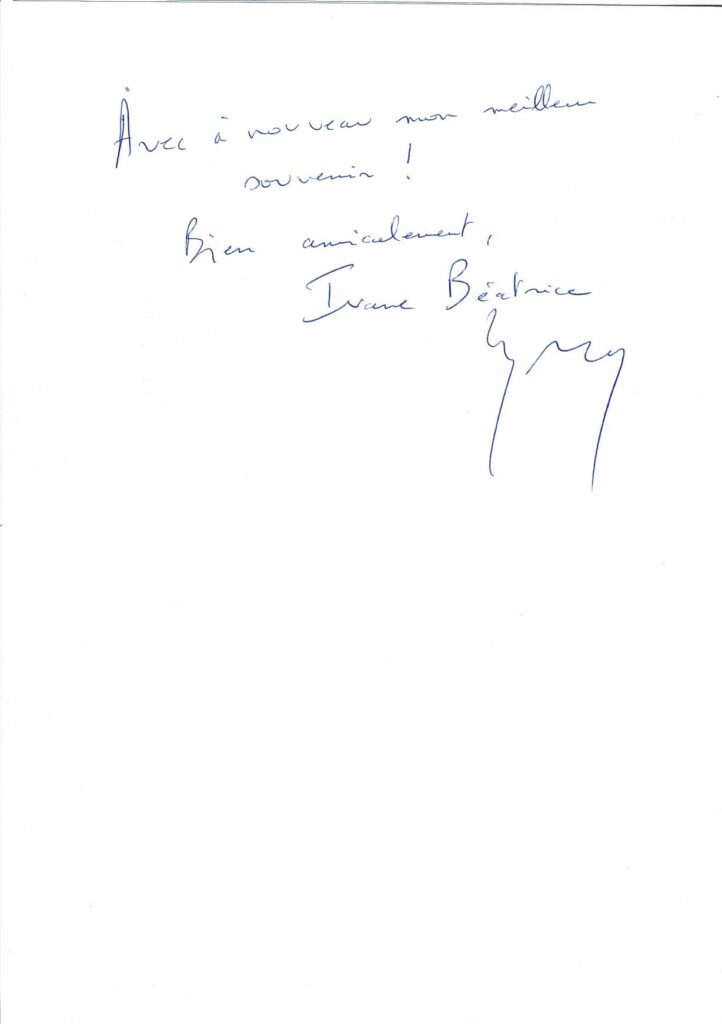 Avec à nouveau mon meilleur
souvenir !
Bien amicalement,
Ivane Béatrice